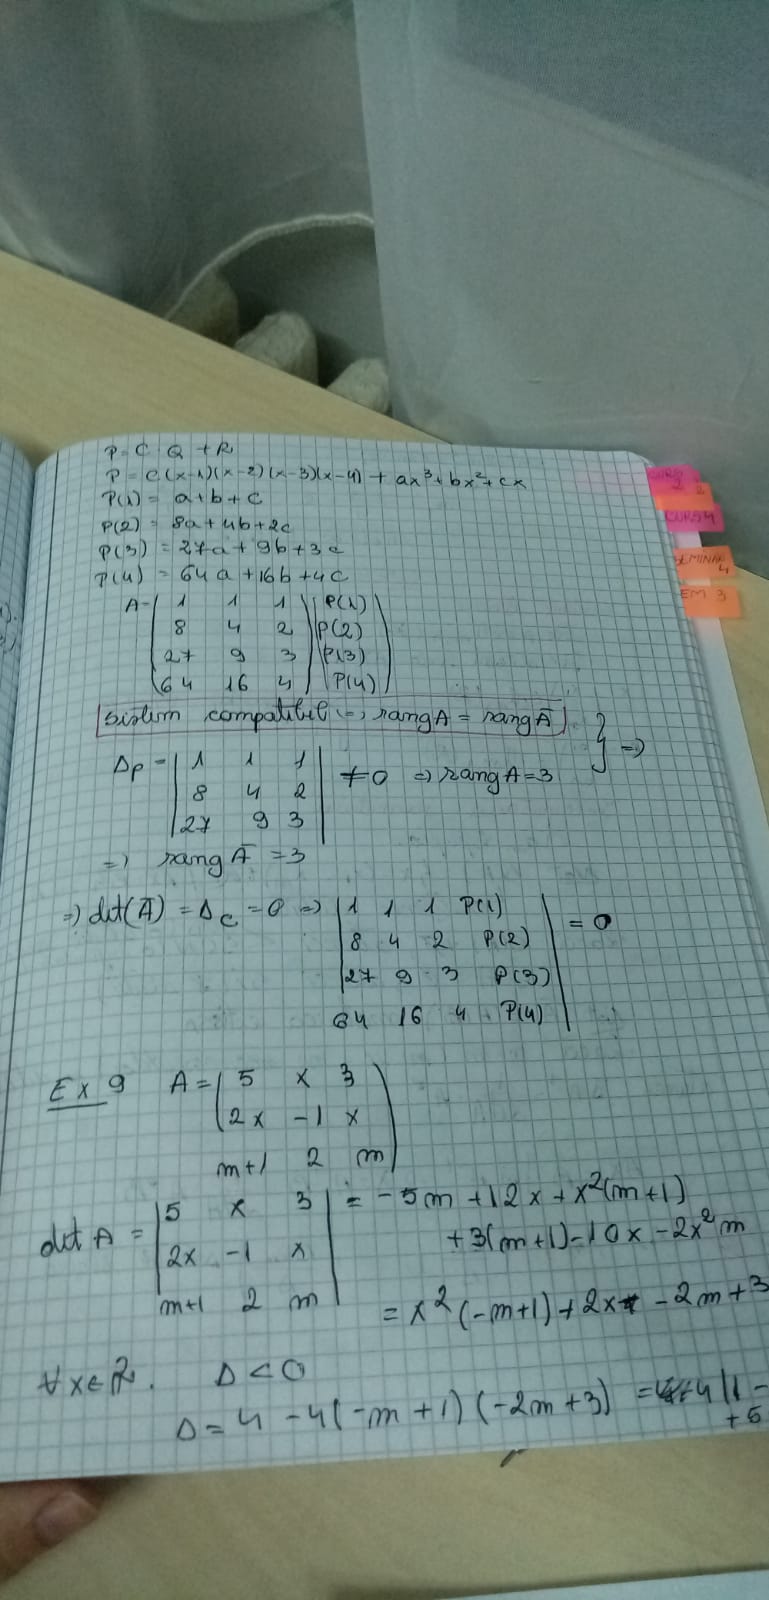 P = C Q + R
P = C(x-1)(x-2)(x-3)(x-4) + ax³+bx²+cx
P(1) = a+b+c
P(2) = 8a+4b+2c
P(3) = 27a+9b+3c
P(4) = 64a+16b+4c
A = ( 1 1 1 | P(1)
8 4 2 | P(2)
27 9 3 | P(3)
64 16 4 | P(4) )
sistem compatibil => rang A = rang Ā } =>
Δp = | 1 1 1
8 4 2 | ≠ 0 => rang A = 3
27 9 3 |
=> rang Ā = 3
=> det(Ā) = Δc = 0 => | 1 1 1 P(1)
8 4 2 P(2) | = 0
27 9 3 P(3)
64 16 4 P(4) |
Ex 9 A = ( 5 x 3
2x -1 x
m+1 2 m )
det A = | 5 x 3 | = -5m + 12x + x²(m+1)
2x -1 x + 3(m+1) - 10x - 2x²m
m+1 2 m |
= x²(-m+1) + 2x - 2m + 3
∀ x ∈ R. Δ < 0
Δ = 4 - 4(-m+1)(-2m+3) =
CURS 2
2
CURS 4
SEMINAR 4
EM 3